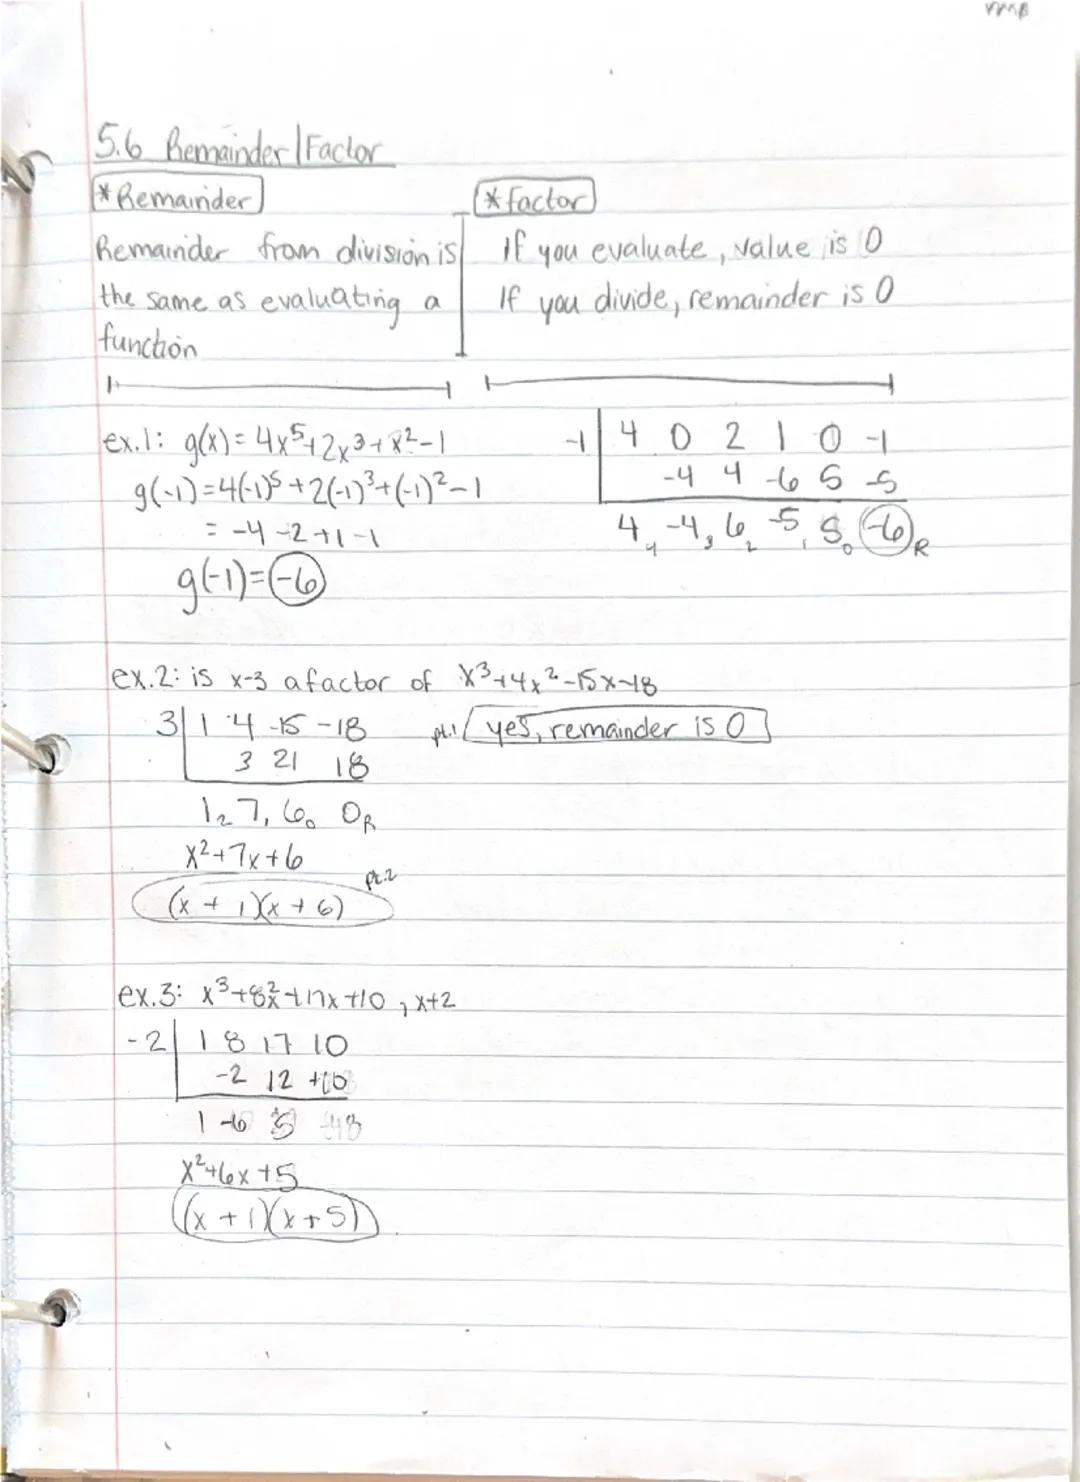 5.6 Remainder|Factor
*Remainder
*factor
Remainder from division is
the same as evaluating a
function
If you evaluate, value is 0
If you divide, remainder is 0
ex.1: g(x) = 4x⁵+2x³+x²-1
g(-1)=4(-1)⁵+2(-1)³+(-1)²-1
= -4-2+1-1
g(-1)=-6
-1| 4 0 2 1 0 -1
-4 4 -6 5 -5
4₄ -4₃ 6₂ -5₁ 5₀ -6 R
ex.2: is x-3 a factor of x³+4x²-15x-18
3| 1 4 -15 -18
pt.1 yes, remainder is 0
3 21 18
1₂ 7₁ 6₀ 0R
x²+7x+6
pt.2
(x + 1)(x + 6)
ex.3: x³+8x²+17x+10, x+2
-2| 1 8 17 10
-2 12 +10
1 -6 5
x²+6x+5
(x + 1)(x + 5)